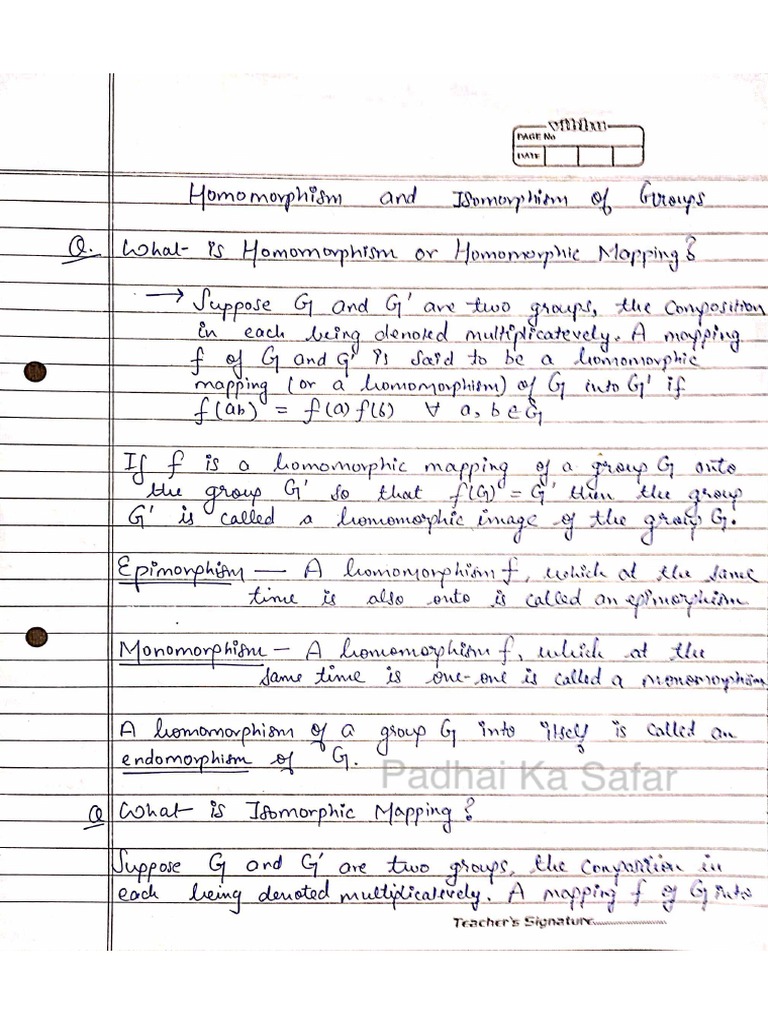 PAGE No
DATE
Homomorphism and Isomorphism of Groups
Q. What is Homomorphism or Homomorphic Mapping?
→ Suppose G and G' are two groups, the composition
in each being denoted multiplicatevely. A mapping
f of G and G' is said to be a homomorphic
mapping (or a homomorphism) of G into G' if
f(ab) = f(a) f(b) ∀ a, b ∈ G
If f is a homomorphic mapping of a group G onto
the group G' so that f(G) = G' then the group
G' is called a homomorphic image of the group G.
Epimorphism — A homomorphism f, which at the same
time is also onto is called an epimorphism
Monomorphism — A homomorphism f, which at the
same time is one-one is called a monomorphism
A homomorphism of a group G into itself is called an
endomorphism of G.
Padhai Ka Safar
Q What is Isomorphic Mapping?
Suppose G and G' are two groups, the composition in
each being denoted multiplicatevely. A mapping f of G into
Teacher's Signature